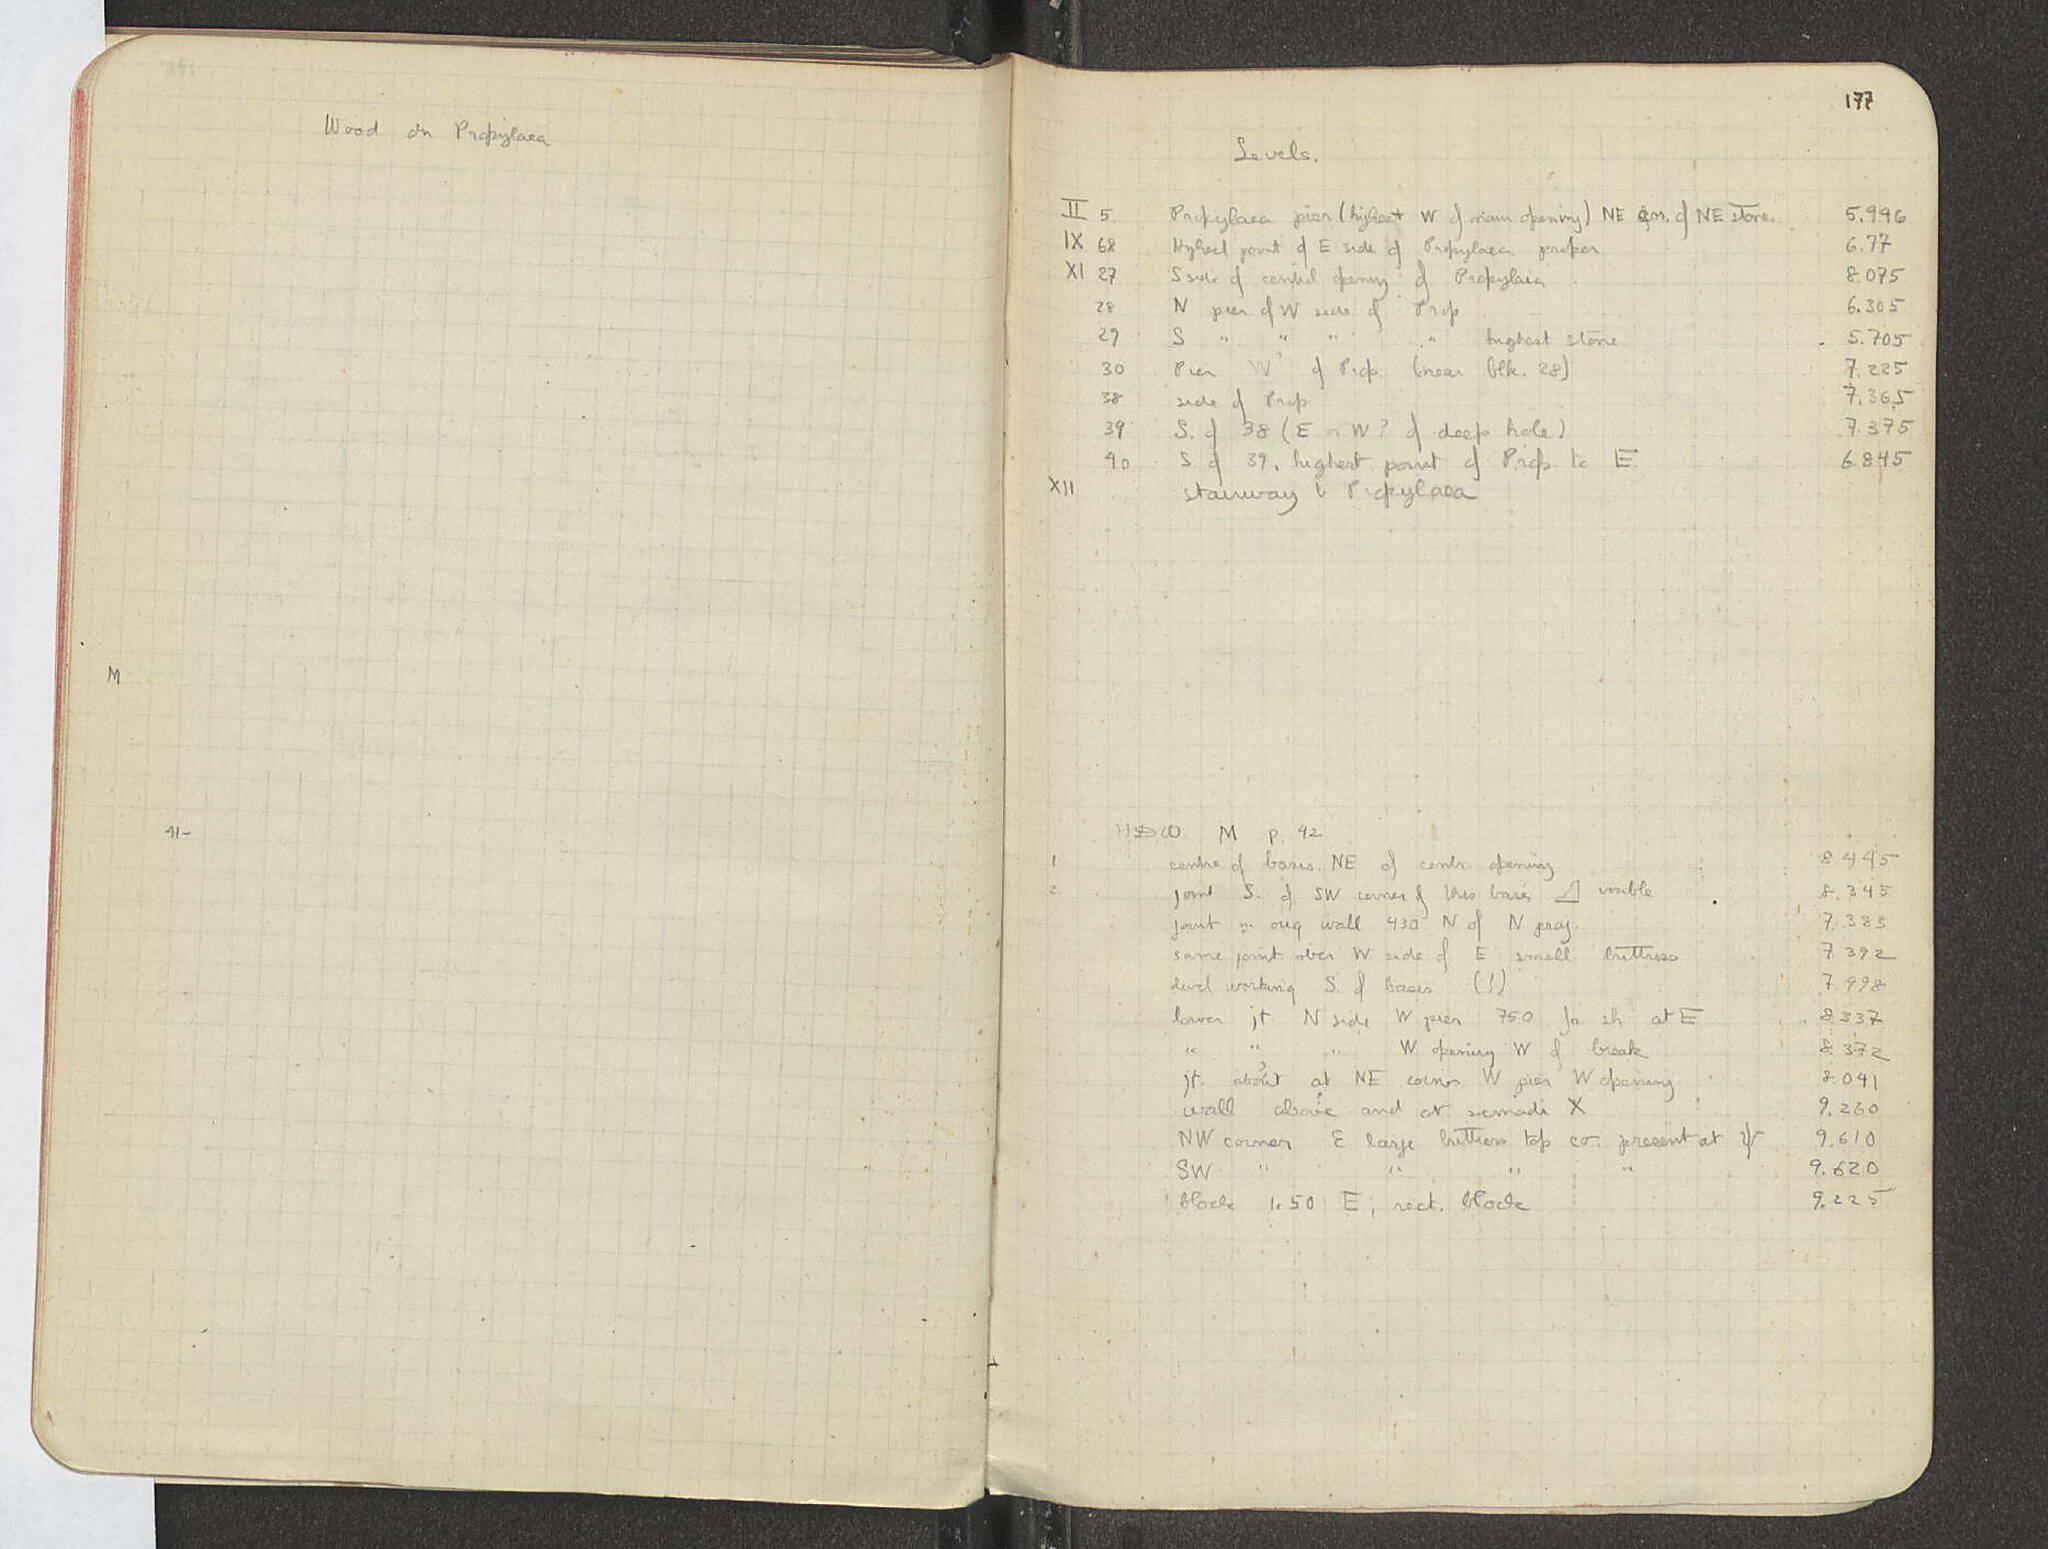 Wood on Propylaea
M
41-
177
Levels.
II 5. Propylaea pier (highest W of main opening) NE cor. of NE stone. 5.996
IX 68 Highest point of E side of Propylaea proper 6.77
XI 27 S side of central opening of Propylaea 8.075
28 N pier of W side of Prop 6.305
29 S " " " " highest stone 5.705
30 Pier W? of Prop. (near blk. 28) 7.225
38 side of Prop 7.365
39 S. of 38 (E or W? of deep hole) 7.375
40 S of 39, highest point of Prop to E 6.845
XII stairway to Propylaea
M p. 42
1 centre of basis NE of centr. opening 8.445
2 joint S. of SW corner of this basis visible 8.345
joint in orig wall 430 N of N proj. 7.383
same joint over W side of E small buttress 7.392
level working S. of basis (!) 7.998
lower jt N side W pier 750 at E 8.337
" " " W opening W of break 8.372
jt. about? at NE corner W pier W opening 8.041
wall above and at X 9.260
NW corner E large buttress top co. present at ψ 9.610
SW " " " " 9.620
block 1.50 E, rect. block 9.225